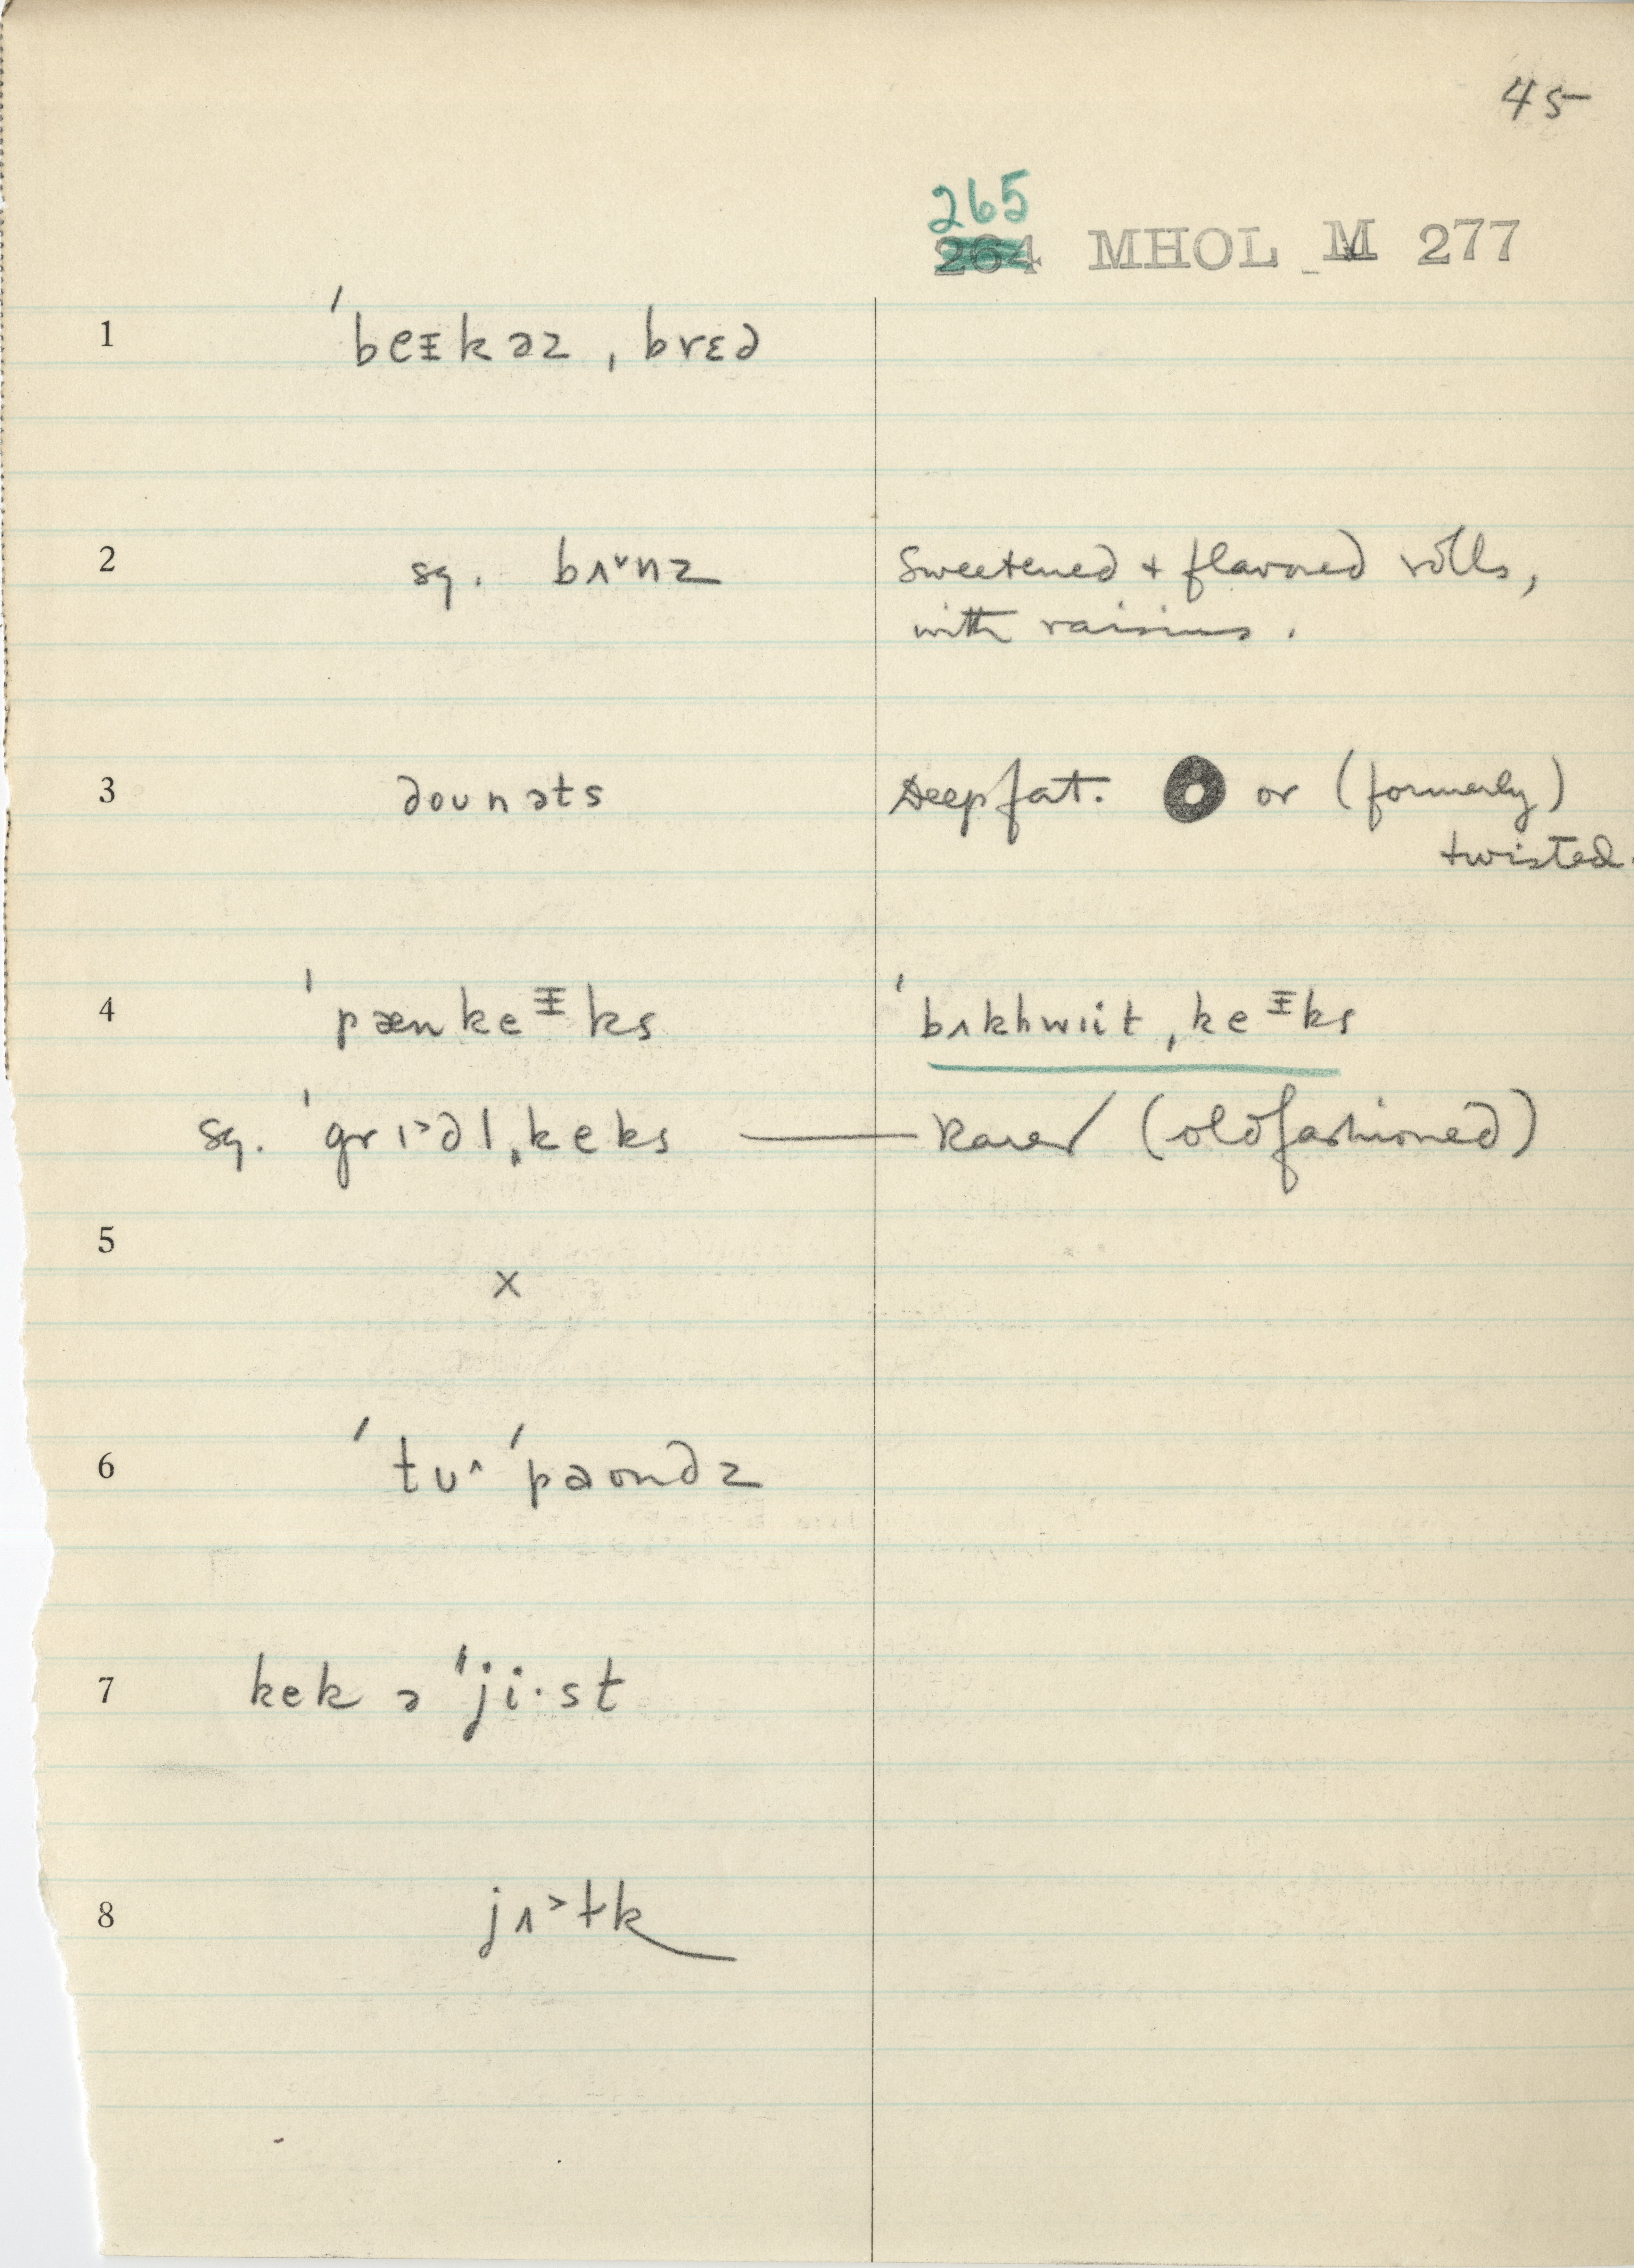 45
265
264 MHOL M 277
1 ˈbeɪkəz ˌbrɛd
2 sg. bʌ˅nz Sweetened + flavored rolls,
with raisins.
3 dounəts Deep fat. or (formerly)
twisted.
4 ˈpænkeᵻks ˈbʌkhwiit ˌkeᵻks
sg. ˈgrɪ˃dl ˌkeks — Rarer (oldfashioned)
5
x
6 ˈtu˄ ˈpaʊndz
7 kek ə ˈji·st
8 jʌ˃ɫk